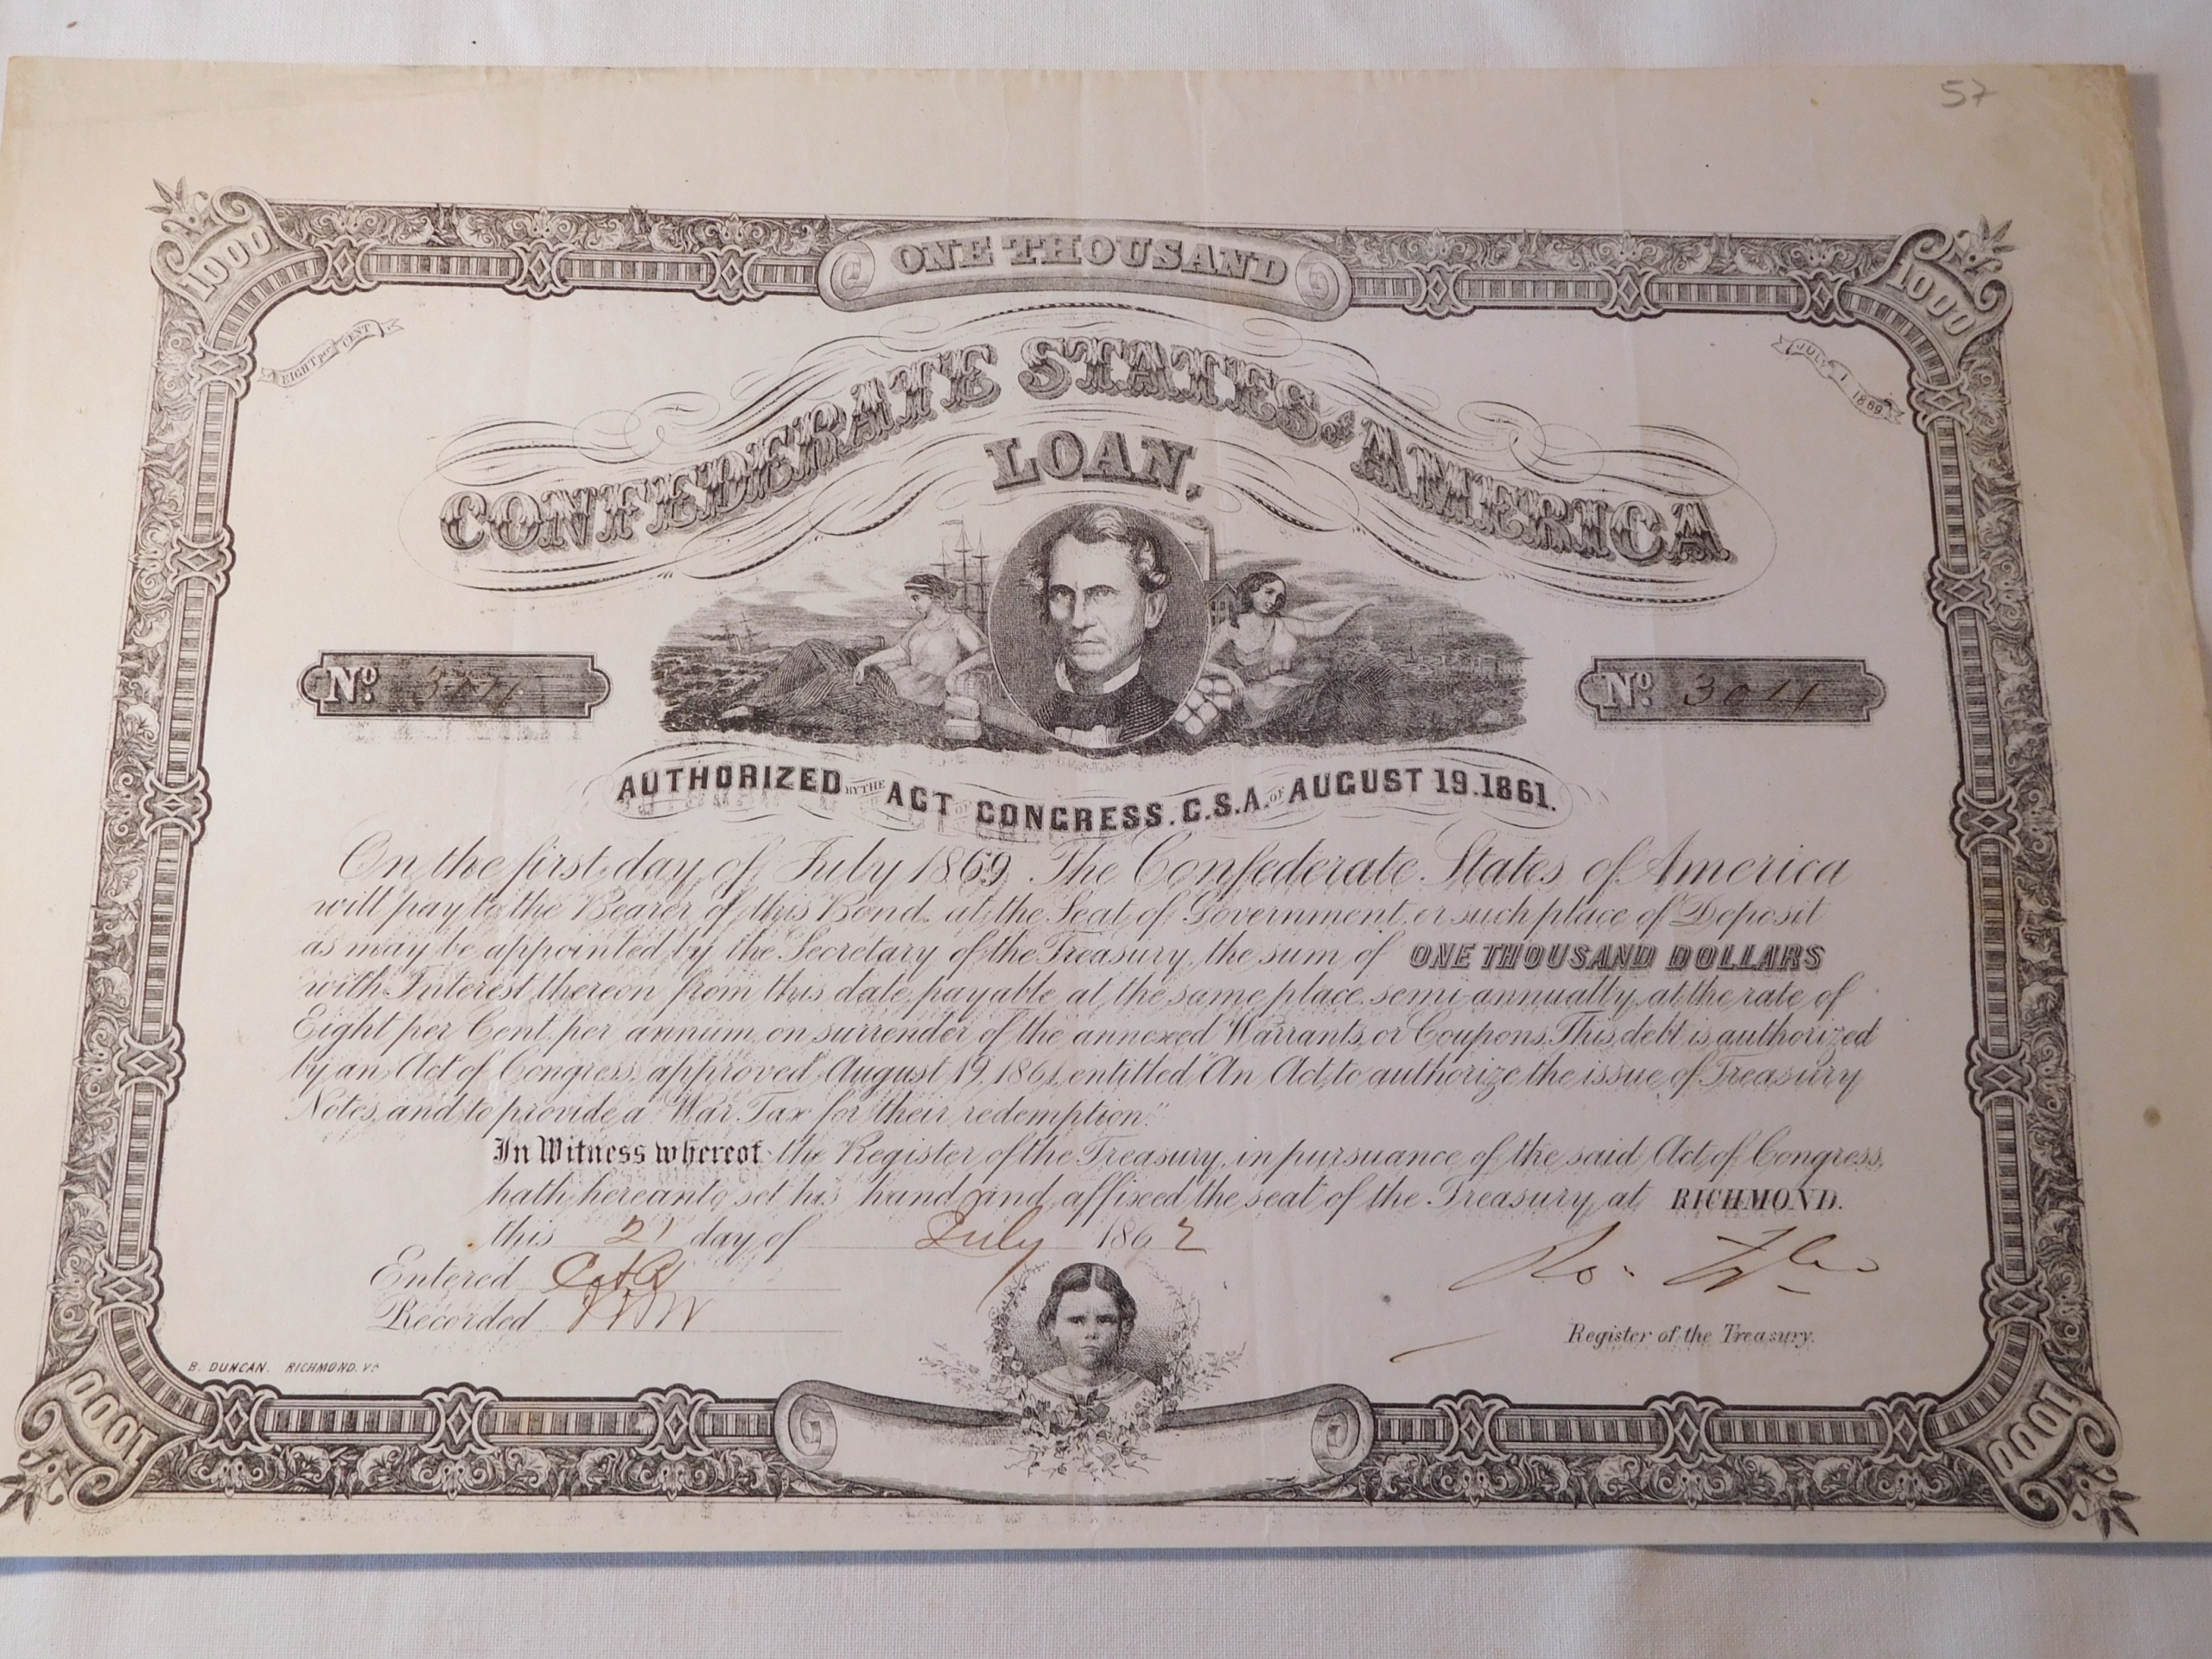 57
ONE THOUSAND
1000 1000
EIGHT per CENT
JULY 1 1869
CONFEDERATE STATES OF AMERICA
LOAN,
No.
No. 3011
AUTHORIZED BY THE ACT OF CONGRESS. C.S.A. OF AUGUST 19. 1861.
On the first day of July 1869 The Confederate States of America
will pay to the Bearer of this Bond, at the Seat of Government, or such place of Deposit
as may be appointed by the Secretary of the Treasury, the sum of ONE THOUSAND DOLLARS
with Interest thereon from this date, payable at the same place, semi-annually, at the rate of
Eight per Cent. per annum, on surrender of the annexed Warrants, or Coupons, This debt is authorized
by an Act of Congress, approved August 19, 1861, entitled "An Act, to authorize the issue of Treasury
Notes, and to provide a War Tax for their redemption."
In Witness whereof the Register of the Treasury, in pursuance of the said Act of Congress,
hath hereunto set his hand and affixed the seal of the Treasury, at RICHMOND.
this 21 day of July 1862
Entered
Recorded
Register of the Treasury.
B. DUNCAN. RICHMOND. Va
1000 1000